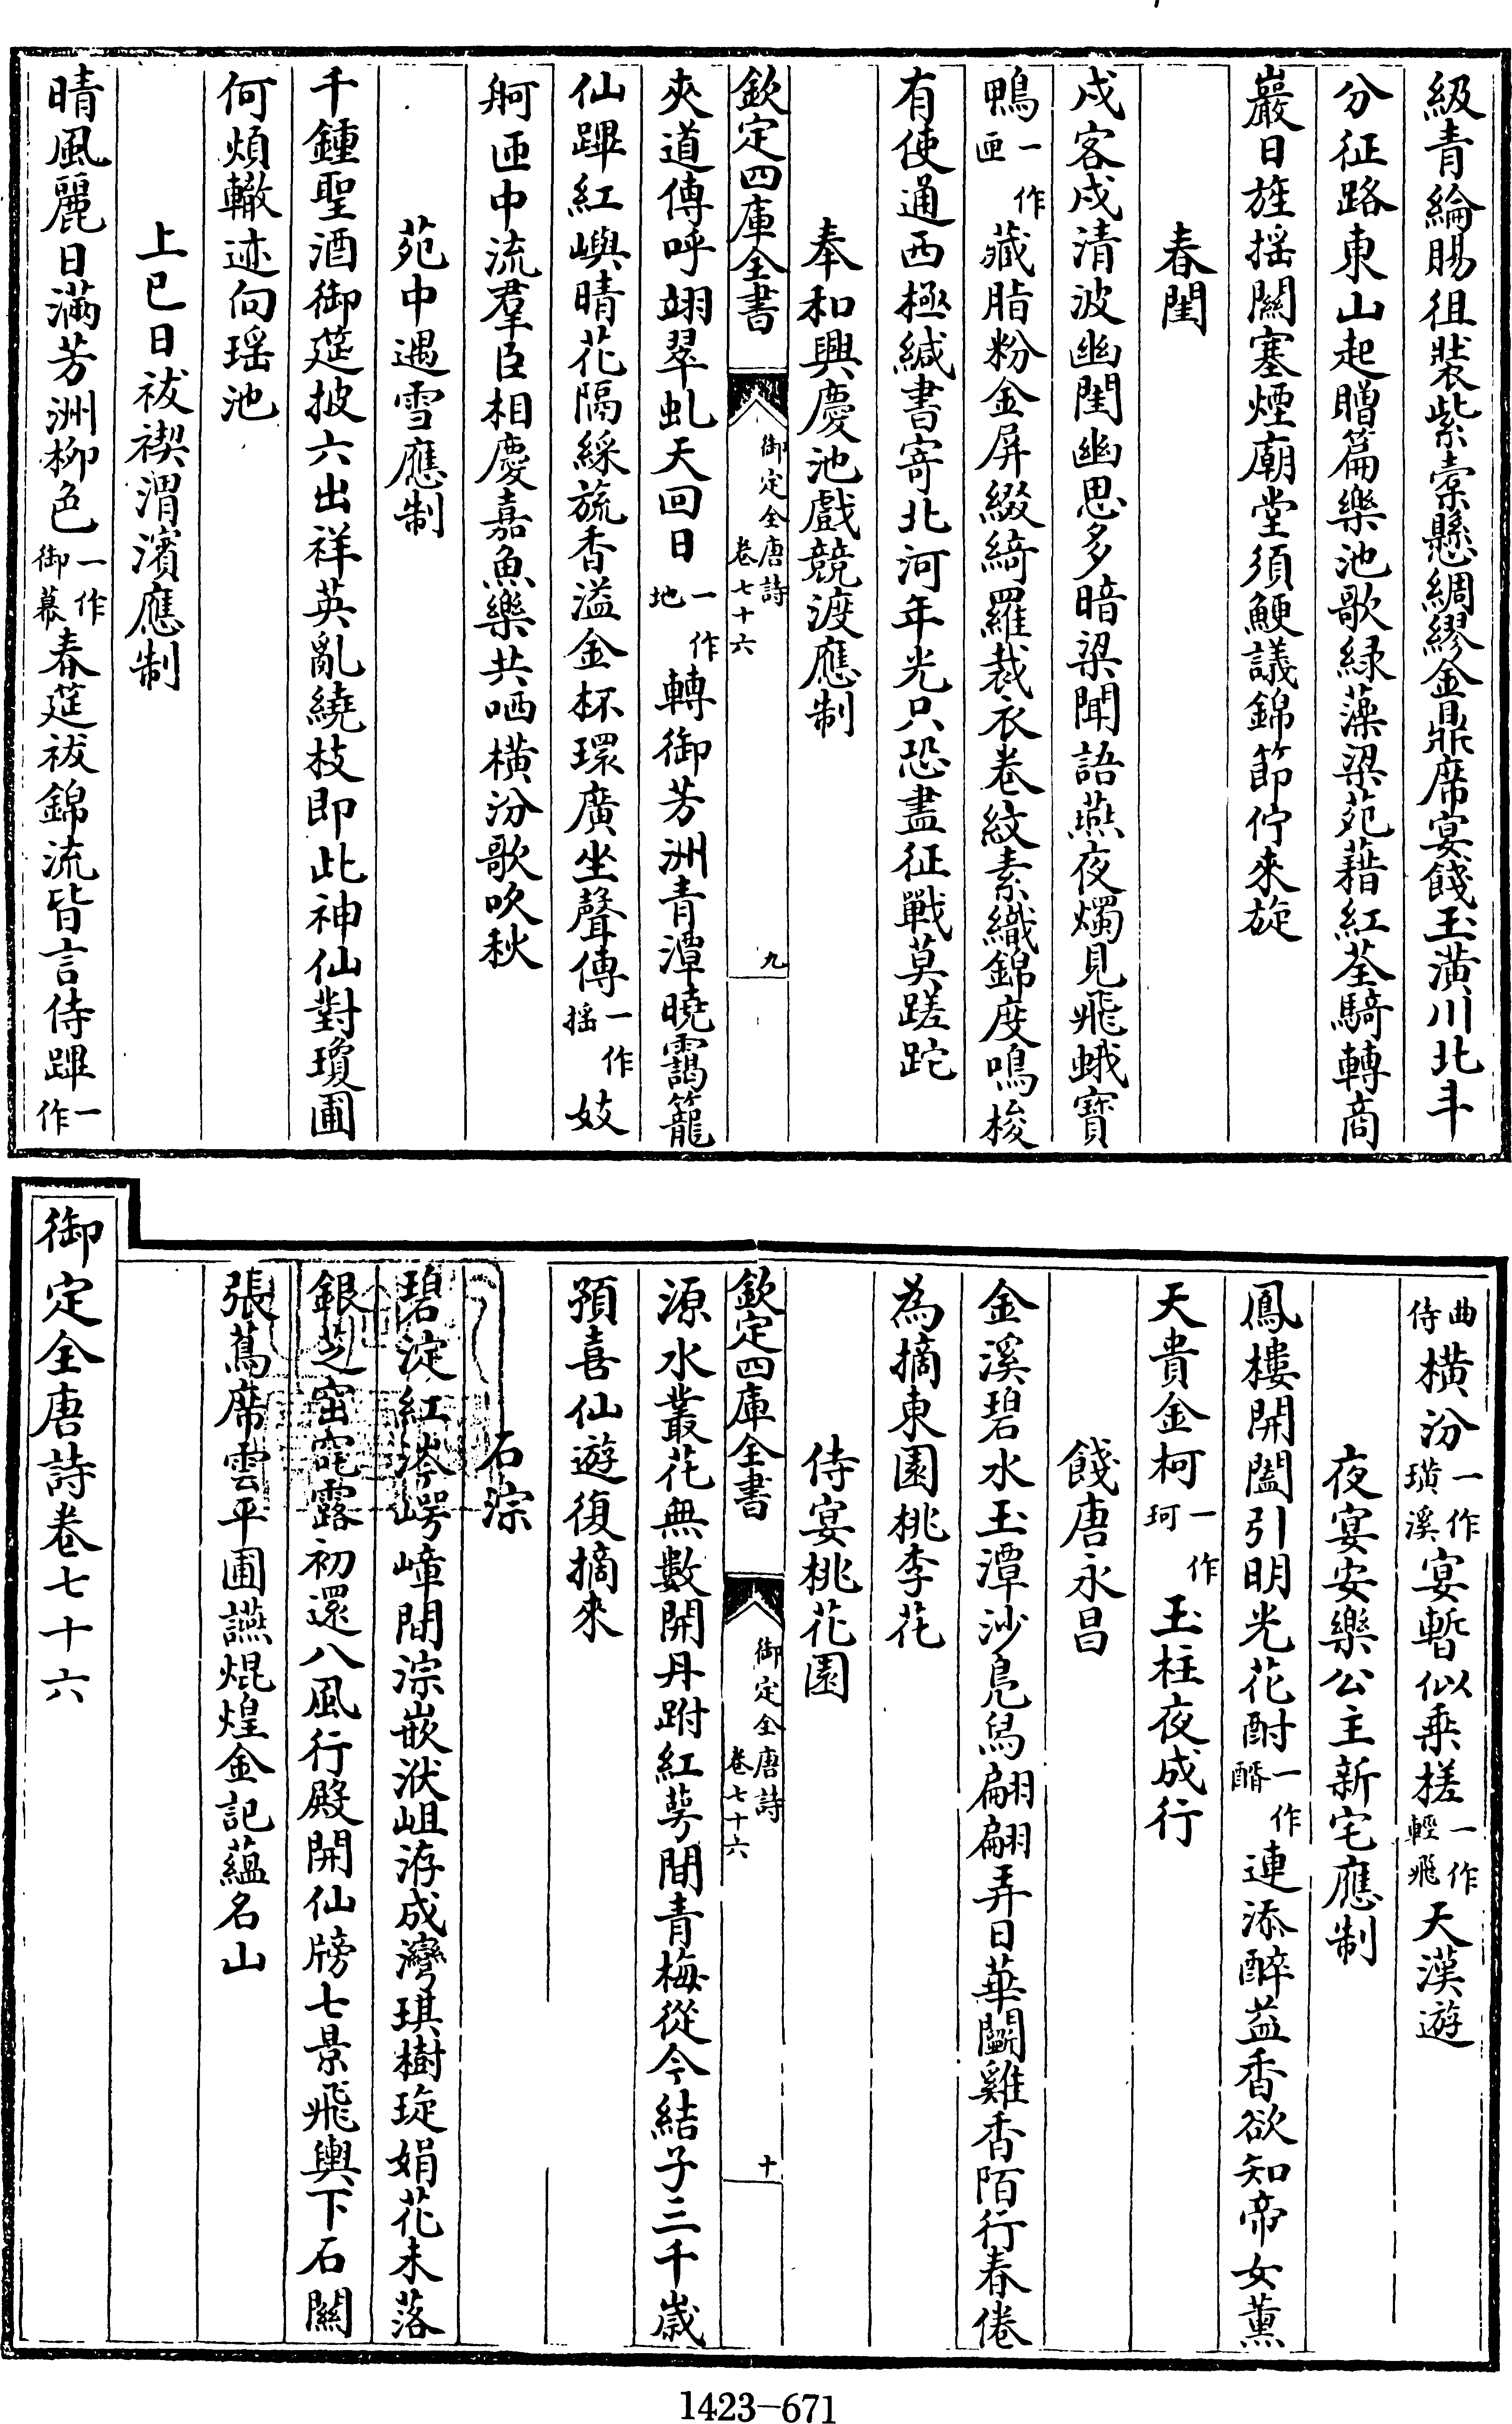 級青綸賜徂裝紫橐懸綢繆金鼎席宴餞玉潢川北斗
分征路東山起贈篇樂池歌緑藻梁苑藉紅荃騎轉商
巖日旌揺關塞煙廟堂須鯁議錦節佇來旋
春閨
戍客戍清波幽閨幽思多暗梁聞語燕夜燭見飛蛾寶
鴨一作匣藏脂粉金屏綴綺羅裁衣卷紋素織錦度鳴梭
有使通西極緘書寄北河年光只恐盡征戰莫蹉跎
奉和興慶池戲競渡應制
欽定四庫全書
御定全唐詩
卷七十六
九
夾道傳呼翊翠虬天回日一作地轉御芳洲青潭曉靄籠
仙蹕紅嶼晴花隔綵旒香溢金杯環廣坐聲傳一作揺妓
舸匝中流羣臣相慶嘉魚樂共哂横汾歌吹秋
苑中遇雪應制
千鍾聖酒御筵披六出祥英亂繞枝即此神仙對瓊圃
何煩轍迹向瑶池
上巳日祓禊渭濱應制
晴風麗日滿芳洲柳色一作御幕春筵祓錦流皆言侍蹕一作
曲侍横汾一作璜溪宴暫似乘槎一作輕飛天漢遊
夜宴安樂公主新宅應制
鳳樓開闔引明光花酎一作醑連添醉益香欲知帝女薰
天貴金柯一作珂玉柱夜成行
餞唐永昌
金溪碧水玉潭沙鳧舄翩翩弄日華鬬雞香陌行春倦
為摘東園桃李花
侍宴桃花園
欽定四庫全書
御定全唐詩
卷七十六
十
源水叢花無數開丹跗紅萼間青梅從今結子三千嵗
預喜仙遊復摘來
石淙
碧淀紅涔崿嶂間淙嵌洑岨洊成灣琪樹琁娟花未落
銀芝窋窀露初還八風行殿開仙牓七景飛輿下石關
張蔦席雲平圃讌焜煌金記蘊名山
御定全唐詩卷七十六
1423-671